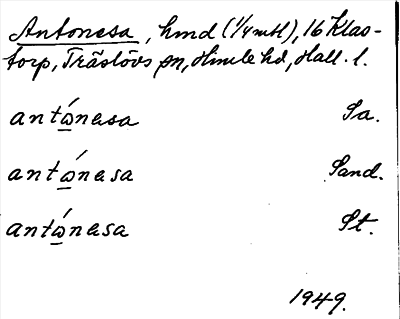 Antonesa, hmd (1/4 mtl), 16 Klas-
torp, Träslövs sn, Himle hd, Hall. l.
antώnesa Sa.
antώnesa Sand.
antώnesa St.
1949.